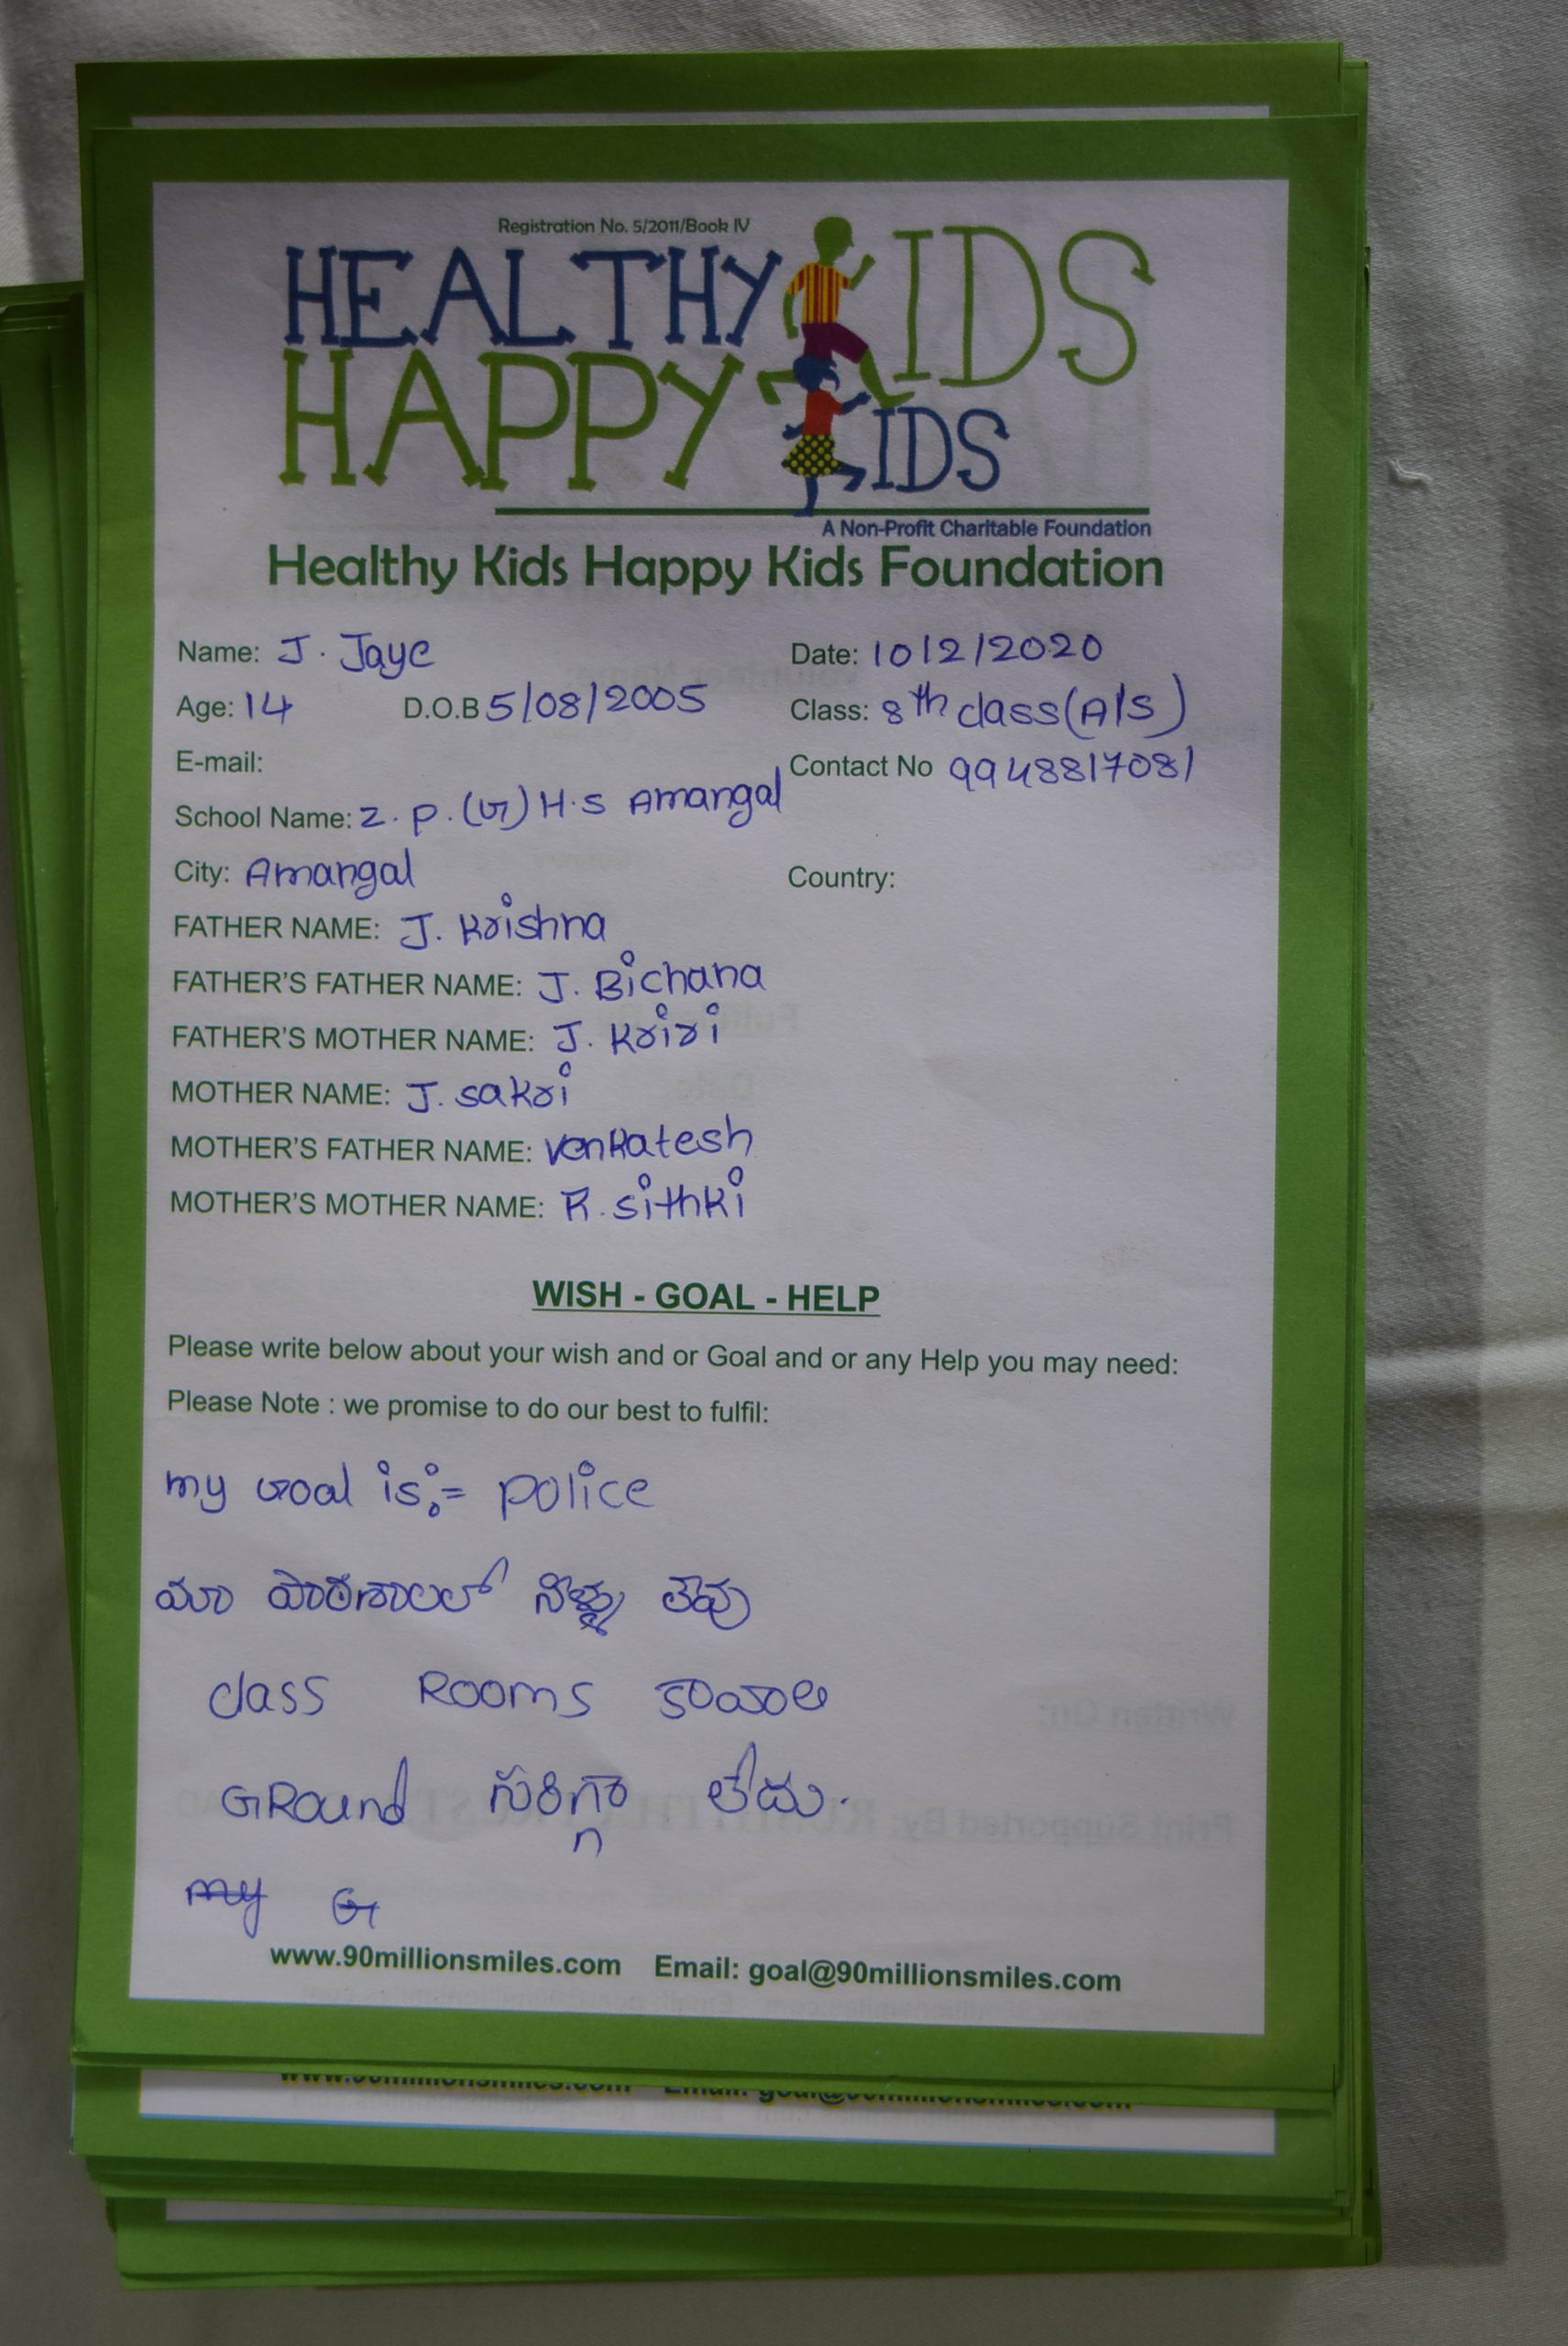 Registration No. 5/2011/Book IV
HEALTHY KIDS
HAPPY KIDS
A Non-Profit Charitable Foundation
Healthy Kids Happy Kids Foundation
Name: J. Jaye Date: 10/2/2020
Age: 14 D.O.B 5/08/2005 Class: 8th class (A/S)
E-mail: Contact No 9948817081
School Name: Z. P. (G) H.S Amangal
City: Amangal Country:
FATHER NAME: J. Krishna
FATHER'S FATHER NAME: J. Bichana
FATHER'S MOTHER NAME: J. Kriri
MOTHER NAME: J. sakri
MOTHER'S FATHER NAME: venkatesh
MOTHER'S MOTHER NAME: R. sithki
WISH - GOAL - HELP
Please write below about your wish and or Goal and or any Help you may need:
Please Note : we promise to do our best to fulfil:
my Goal is:= police
మా పాఠశాలలో నీళ్ళు లేవు
class Rooms కావాలి
GRound సరిగ్గా లేదు.
my G
www.90millionsmiles.com Email: goal@90millionsmiles.com